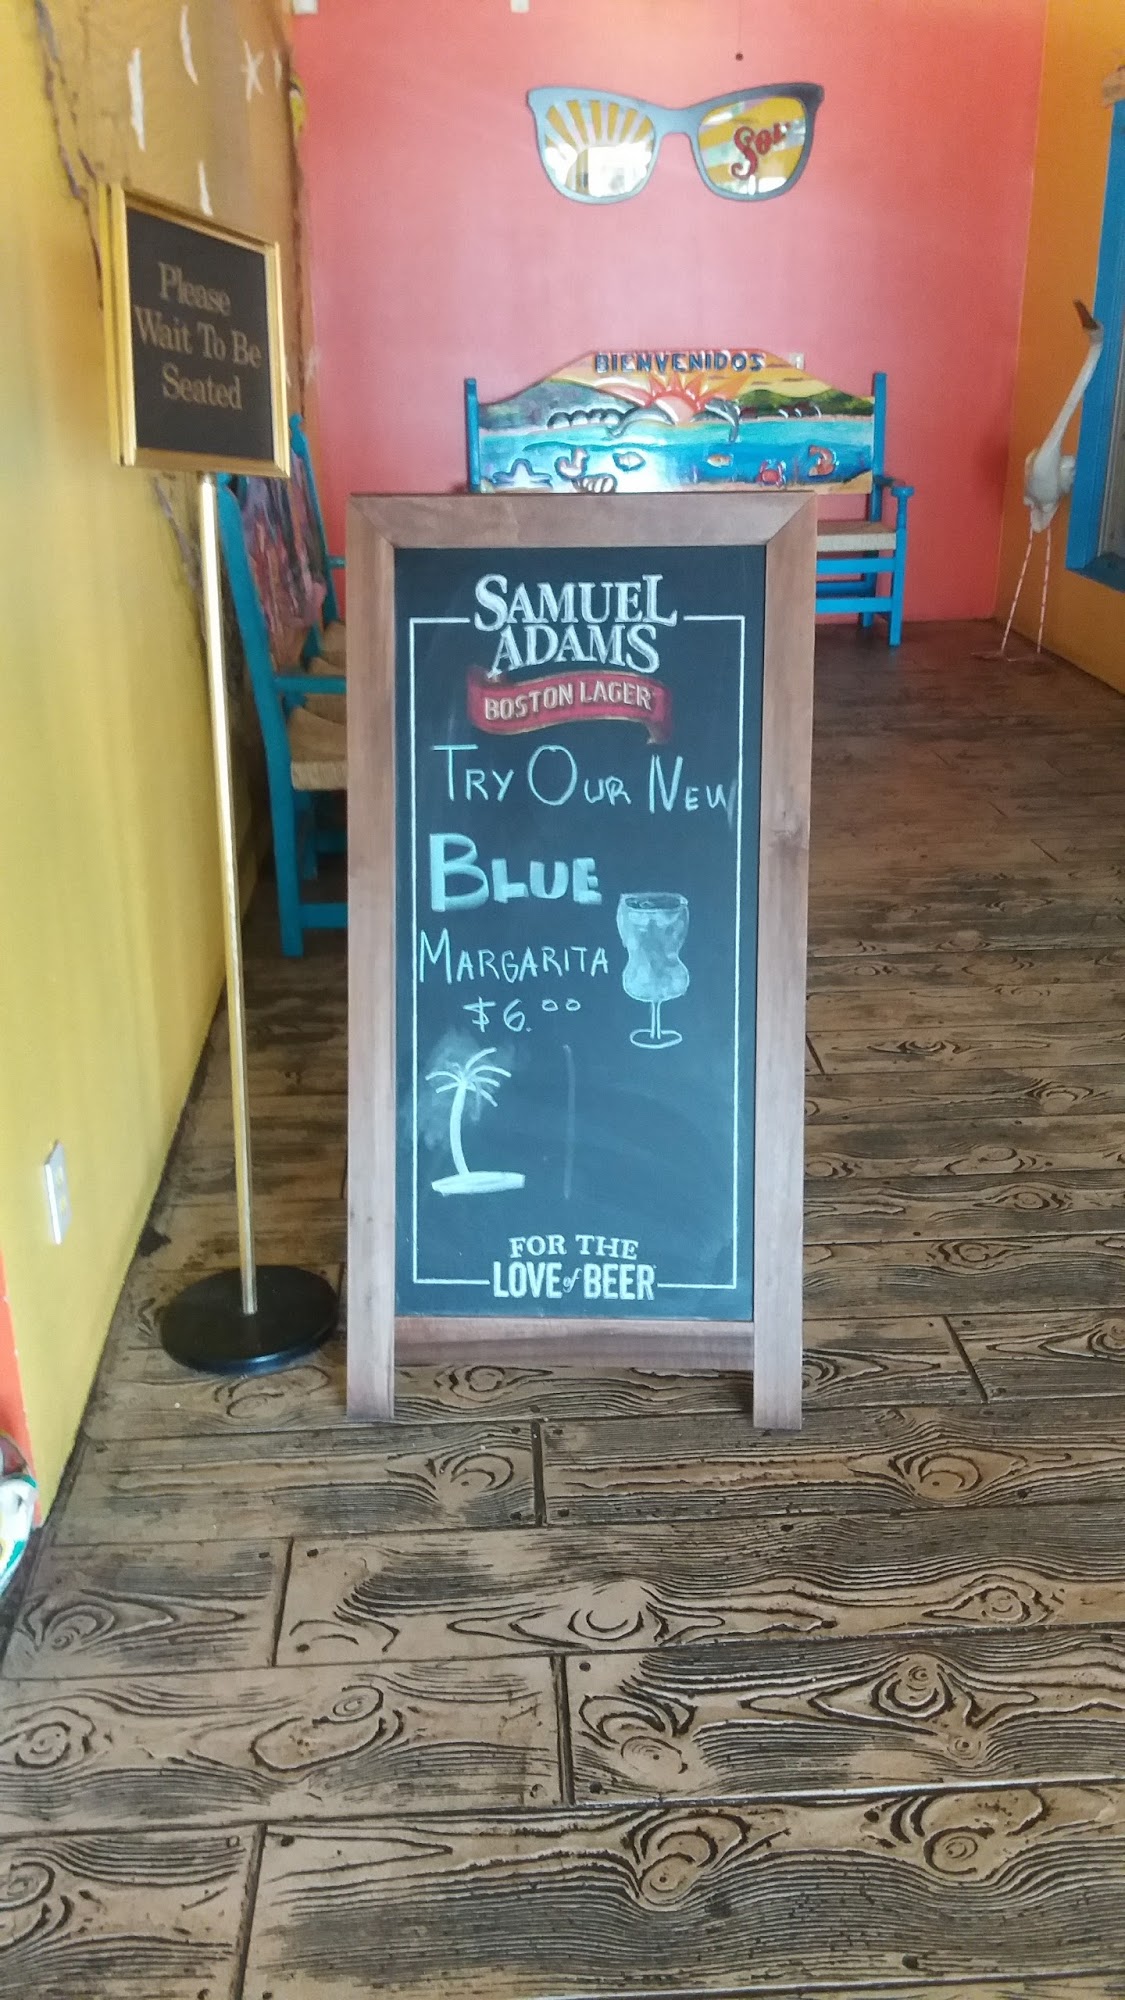 Sol
Please
Wait To Be
Seated
BIENVENIDOS
SAMUEL
ADAMS
BOSTON LAGER
TRY OUR NEW
BLUE
MARGARITA
$6.00
FOR THE
LOVE of BEER